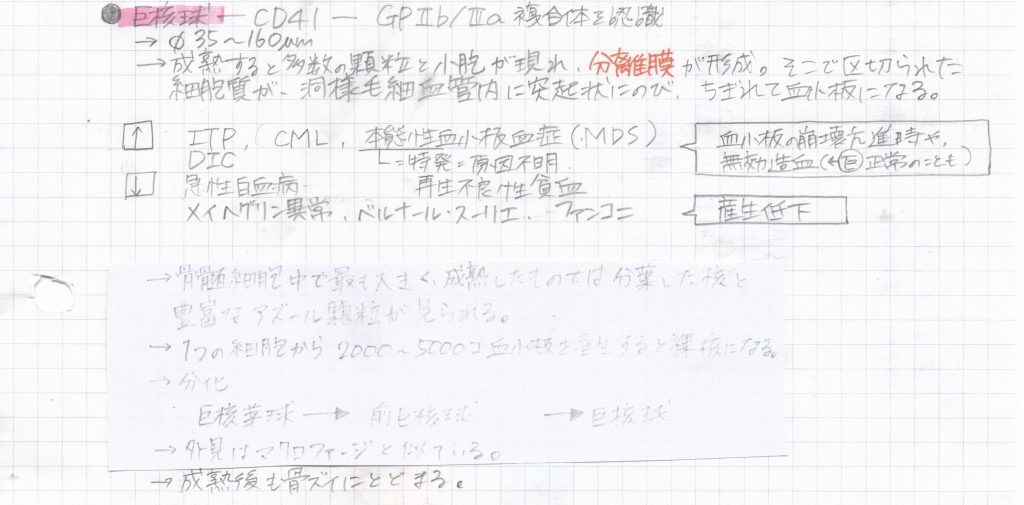 巨核球 ← CD41 ― GPⅡb/Ⅲa 複合体を認識
→ φ35〜160μm
→ 成熟すると多数の顆粒と小胞が現れ、分離膜が形成。そこで区切られた
細胞質が、洞様毛細血管内に突起状にのび、ちぎれて血小板になる。
↑ ITP, CML, 本態性血小板血症 (MDS)
DIC ∟=特発=原因不明
血小板の崩壊亢進時や、
無効造血(←巨正常のことも)
↓ 急性白血病 再生不良性貧血
メイヘグリン異常、ベルナール・スーリエ、ファンコニ
産生低下
→ 骨髄細胞中で最も大きく、成熟したものでは分葉した核と
豊富なアズール顆粒が見られる。
→ 1つの細胞から 2000〜5000コ血小板を産生すると裸核になる。
→ 分化
巨核芽球 → 前巨核球 → 巨核球
→ 外見はマクロファージと似ている。
→ 成熟後も骨ズイにとどまる。